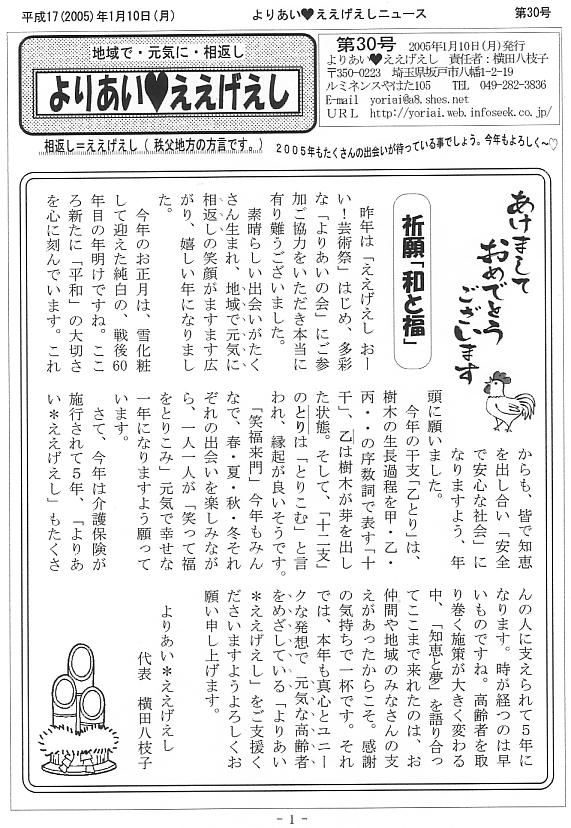 平成17(2005)年1月10日(月)
よりあい♥ええげえしニュース
第30号
地域で・元気に・相返し
よりあい♥ええげえし
第30号 2005年1月10日(月)発行
よりあい♥ええげえし 責任者:横田八枝子
〒350-0223 埼玉県坂戸市八幡1-2-19
ルミネンスやはた105 TEL 049-282-3836
E-mail yoriai@a8.shes.net
URL http://yoriai.web.infoseek.co.jp/
相返し=ええげえし(秩父地方の方言です。)
2005年もたくさんの出会いが待っている事でしょう。今年もよろしく~♡
あけまして
おめでとう
ございます
祈願「和と福」
昨年は「ええげえし おー
い!芸術祭」はじめ、多彩
な「よりあいの会」にご参
加ご協力をいただき本当に
有り難うございました。
素晴らしい出会いがたく
さん生まれ、地域で元気に
相返しの笑顔がますます広
がり、嬉しい年になりまし
た。
今年のお正月は、雪化粧
して迎えた純白の、戦後60
年目の年明けですね。ここ
ろ新たに「平和」の大切さ
を心に刻んでいます。これ
からも、皆で知恵
を出し合い「安全
で安心な社会」に
なりますよう、年
頭に願いました。
今年の干支「乙とり」は、
樹木の生長過程を甲・乙・
丙・・の序数詞で表す「十
干」、乙は樹木が芽を出し
た状態。そして、「十二支」
のとりは「とりこむ」と言
われ、縁起が良いそうです。
「笑福来門」今年もみん
なで、春・夏・秋・冬それ
ぞれの出会いを楽しみなが
ら、一人一人が「笑って福
をとりこみ」元気で幸せな
一年になりますよう願って
います。
さて、今年は介護保険が
施行されて5年、「よりあ
い*ええげえし」もたくさ
んの人に支えられて5年に
なります。時が経つのは早
いものですね。高齢者を取
り巻く施策が大きく変わる
中、「知恵と夢」を語り合っ
てここまで来れたのは、お
仲間や地域のみなさんの支
えがあったからこそ。感謝
の気持ちで一杯です。それ
では、本年も真心とユニー
クな発想で 元気な高齢者
をめざしている「よりあい
*ええげえし」をご支援く
ださいますようよろしくお
願い申し上げます。
よりあい*ええげえし
代表 横田八枝子
- 1 -